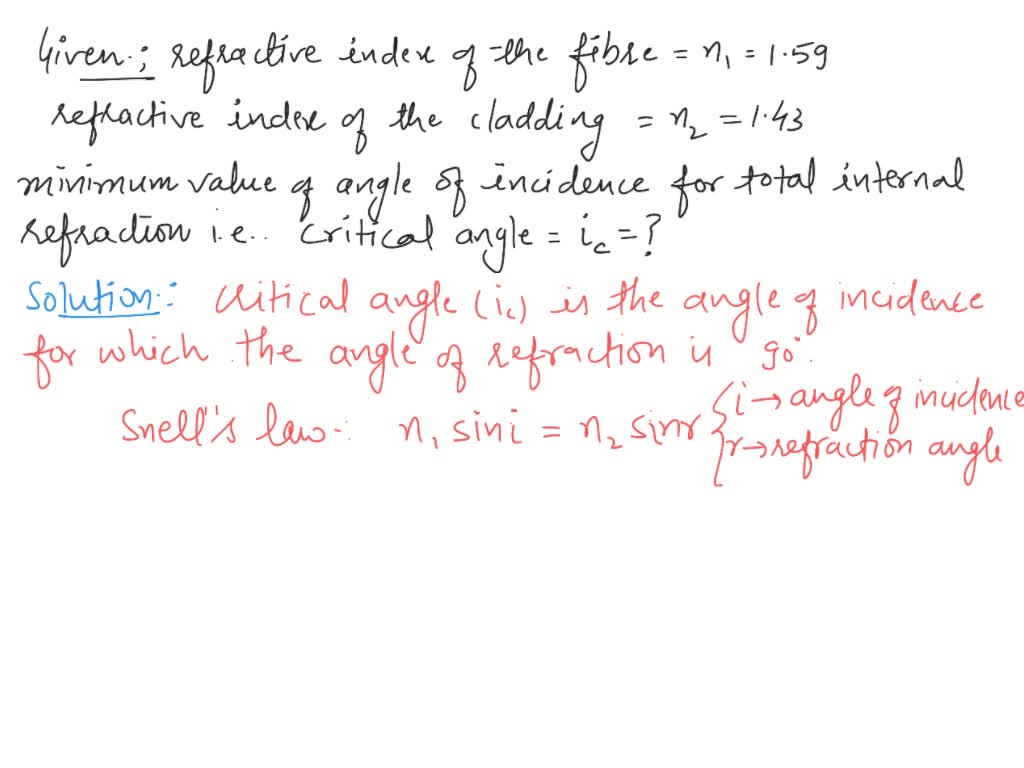 Given:; refractive index of the fibre = n₁ = 1.59
refractive index of the cladding = n₂ = 1.43
minimum value of angle of incidence for total internal
refraction i.e.. critical angle = i_c = ?
Solution:: Critical angle (i_c) is the angle of incidence
for which the angle of refraction is 90°.
Snell's law-: n₁ sini = n₂ sinr { i → angle of incidence
r → refraction angle